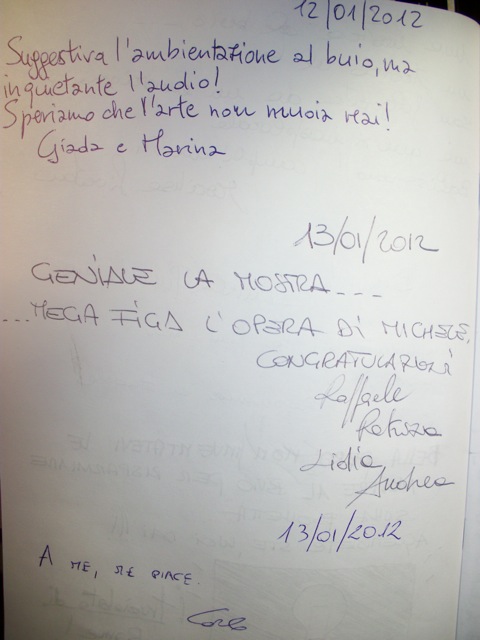 12/01/2012
Suggestiva l'ambientazione al buio, ma
inquietante l'audio!
Speriamo che l'arte non muoia mai!
Giada e Marina
13/01/2012
GENIALE LA MOSTRA...
...MEGA FIGA L'OPERA DI MICHELE.
CONGRATULAZIONI
Raffaele
Lidia
Andrea
13/01/2012
A ME, ME PIACE.